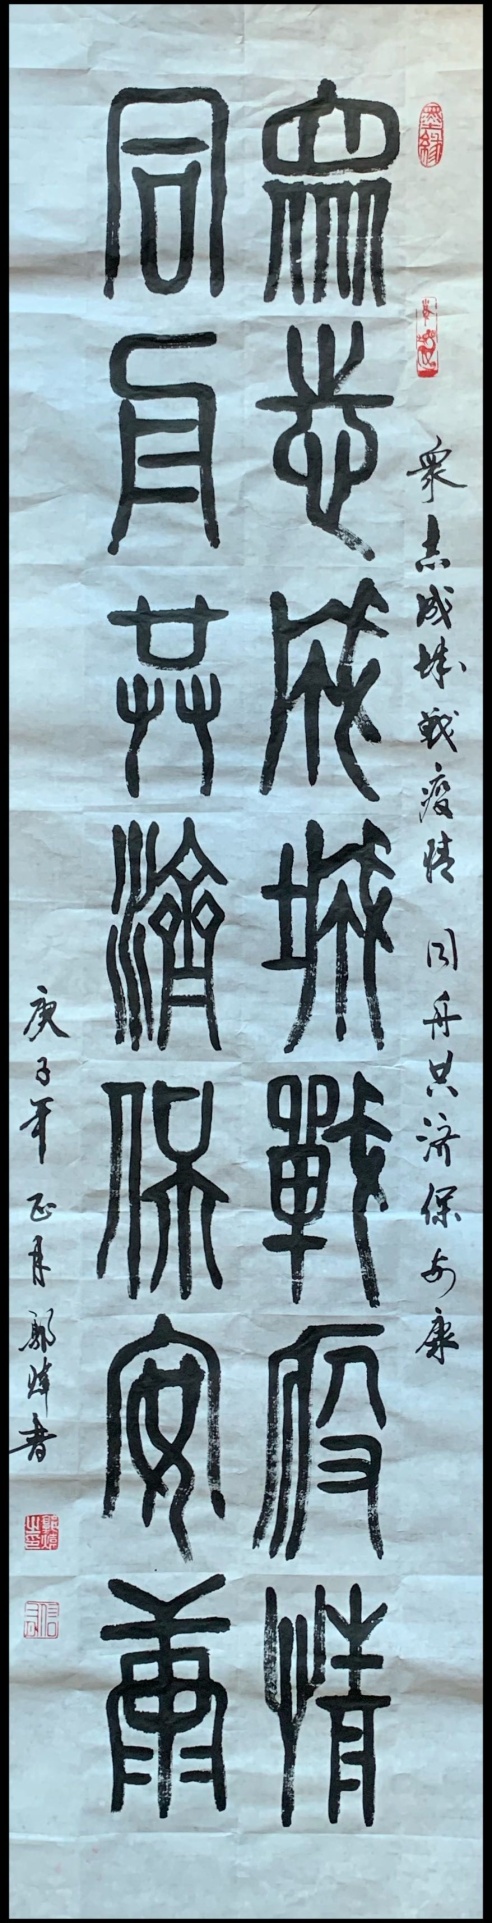 墨缘
眾志成城戰疫情 同舟共济保安康
眾志成城戰疫情
同舟共濟保安康
庚子年正月郭煒書